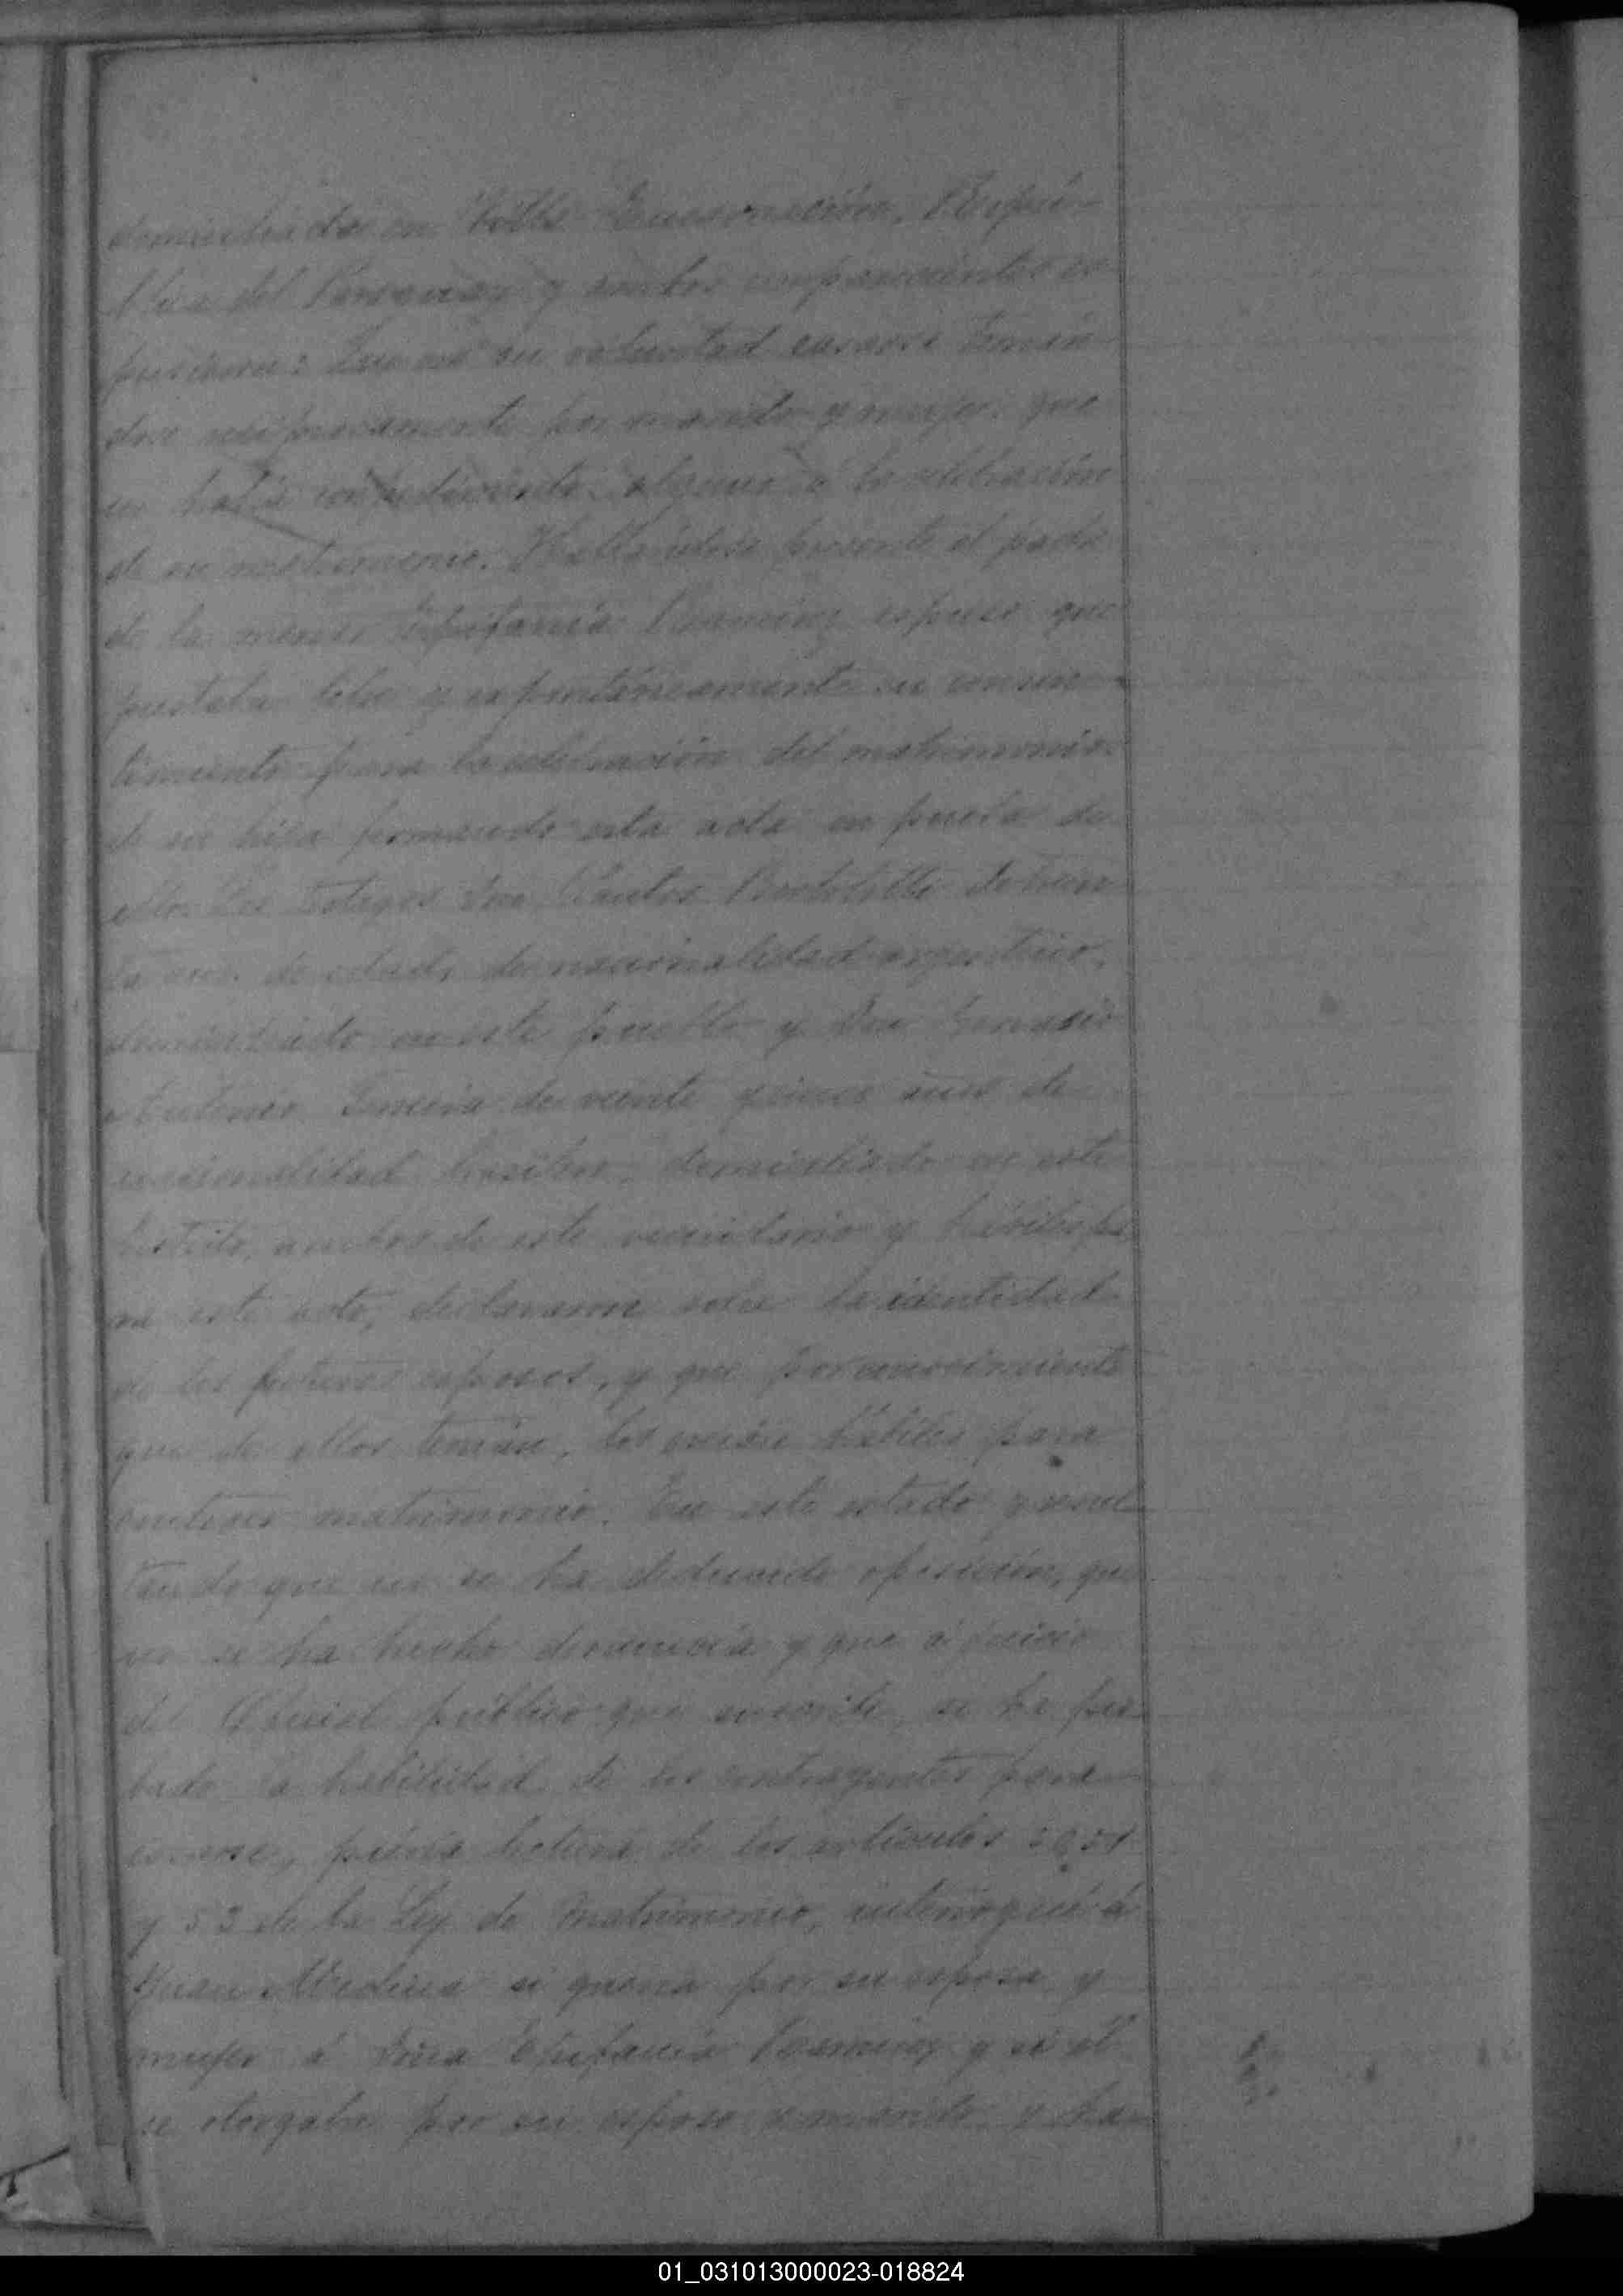 domiciliada en Villa Encarnación, Repú-
blica del Paraguay y ambos comparecientes es-
pusieron: Que era su voluntad casarse tomán-
dose reciprocamente por marido y mujer que
no había impedimento alguno á la celebración
de su matrimonio. Hallándose presente el padre
de la menor Epifania Ramirez espuso que
prestaba libre y espontáneamente su consen-
timiento para la celebración del matrimonio
de su hija firmando esta acta en prueba de
ello. Los testigos Don Carlos de trein
ta años de edad, de nacionalidad argentino,
domiciliado en este pueblo y Don Gervasio
Antonio de veinte y cinco años de
nacionalidad brasilera, domiciliado en este
distrito, ambos de este vecindario y hábiles pa
ra este acto, declararon sobre la identidad
de los futuros esposos, y que por conocimiento
que de ellos tenían, los creían hábiles para
contraer matrimonio. En este estado y resul-
tando que no se ha deducido oposición, que
no se ha hecho denuncia y que á juicio
del Oficial público que suscribe, se ha pro-
bado la habilidad de los contrayentes para
casarse, prévia lectura de los artículos 50, 51
y 53 de la Ley de Matrimonio, interrogué á
Juan Medina si queria por su esposa y
mujer á Doña Epifania Ramirez y si él
se otorgaba por su esposo y marido, y ha-
01_031013000023-018824